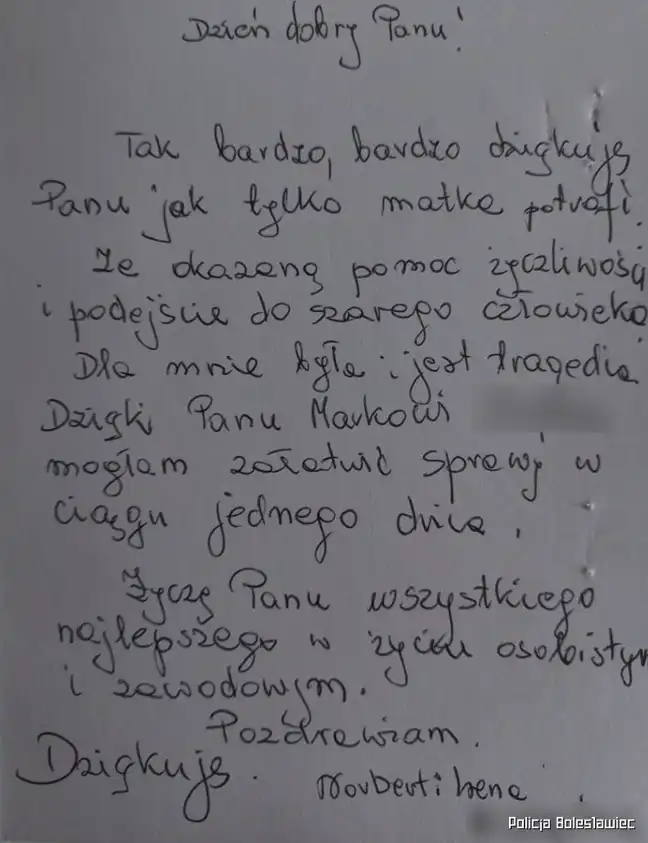 Dzień dobry Panu!
Tak bardzo, bardzo dziękuję
Panu jak tylko matka potrafi.
Ze okazaną pomoc życzliwość
i podejście do szarego człowieka
Dla mnie była i jest tragedia
Dzięki Panu Markowi
mogłam załatwić sprawę w
ciągu jednego dnia.
Życzę Panu wszystkiego
najlepszego w życiu osobistym
i zawodowym.
Pozdrawiam.
Dziękuję. Norbert i Irena
Policja Bolesławiec